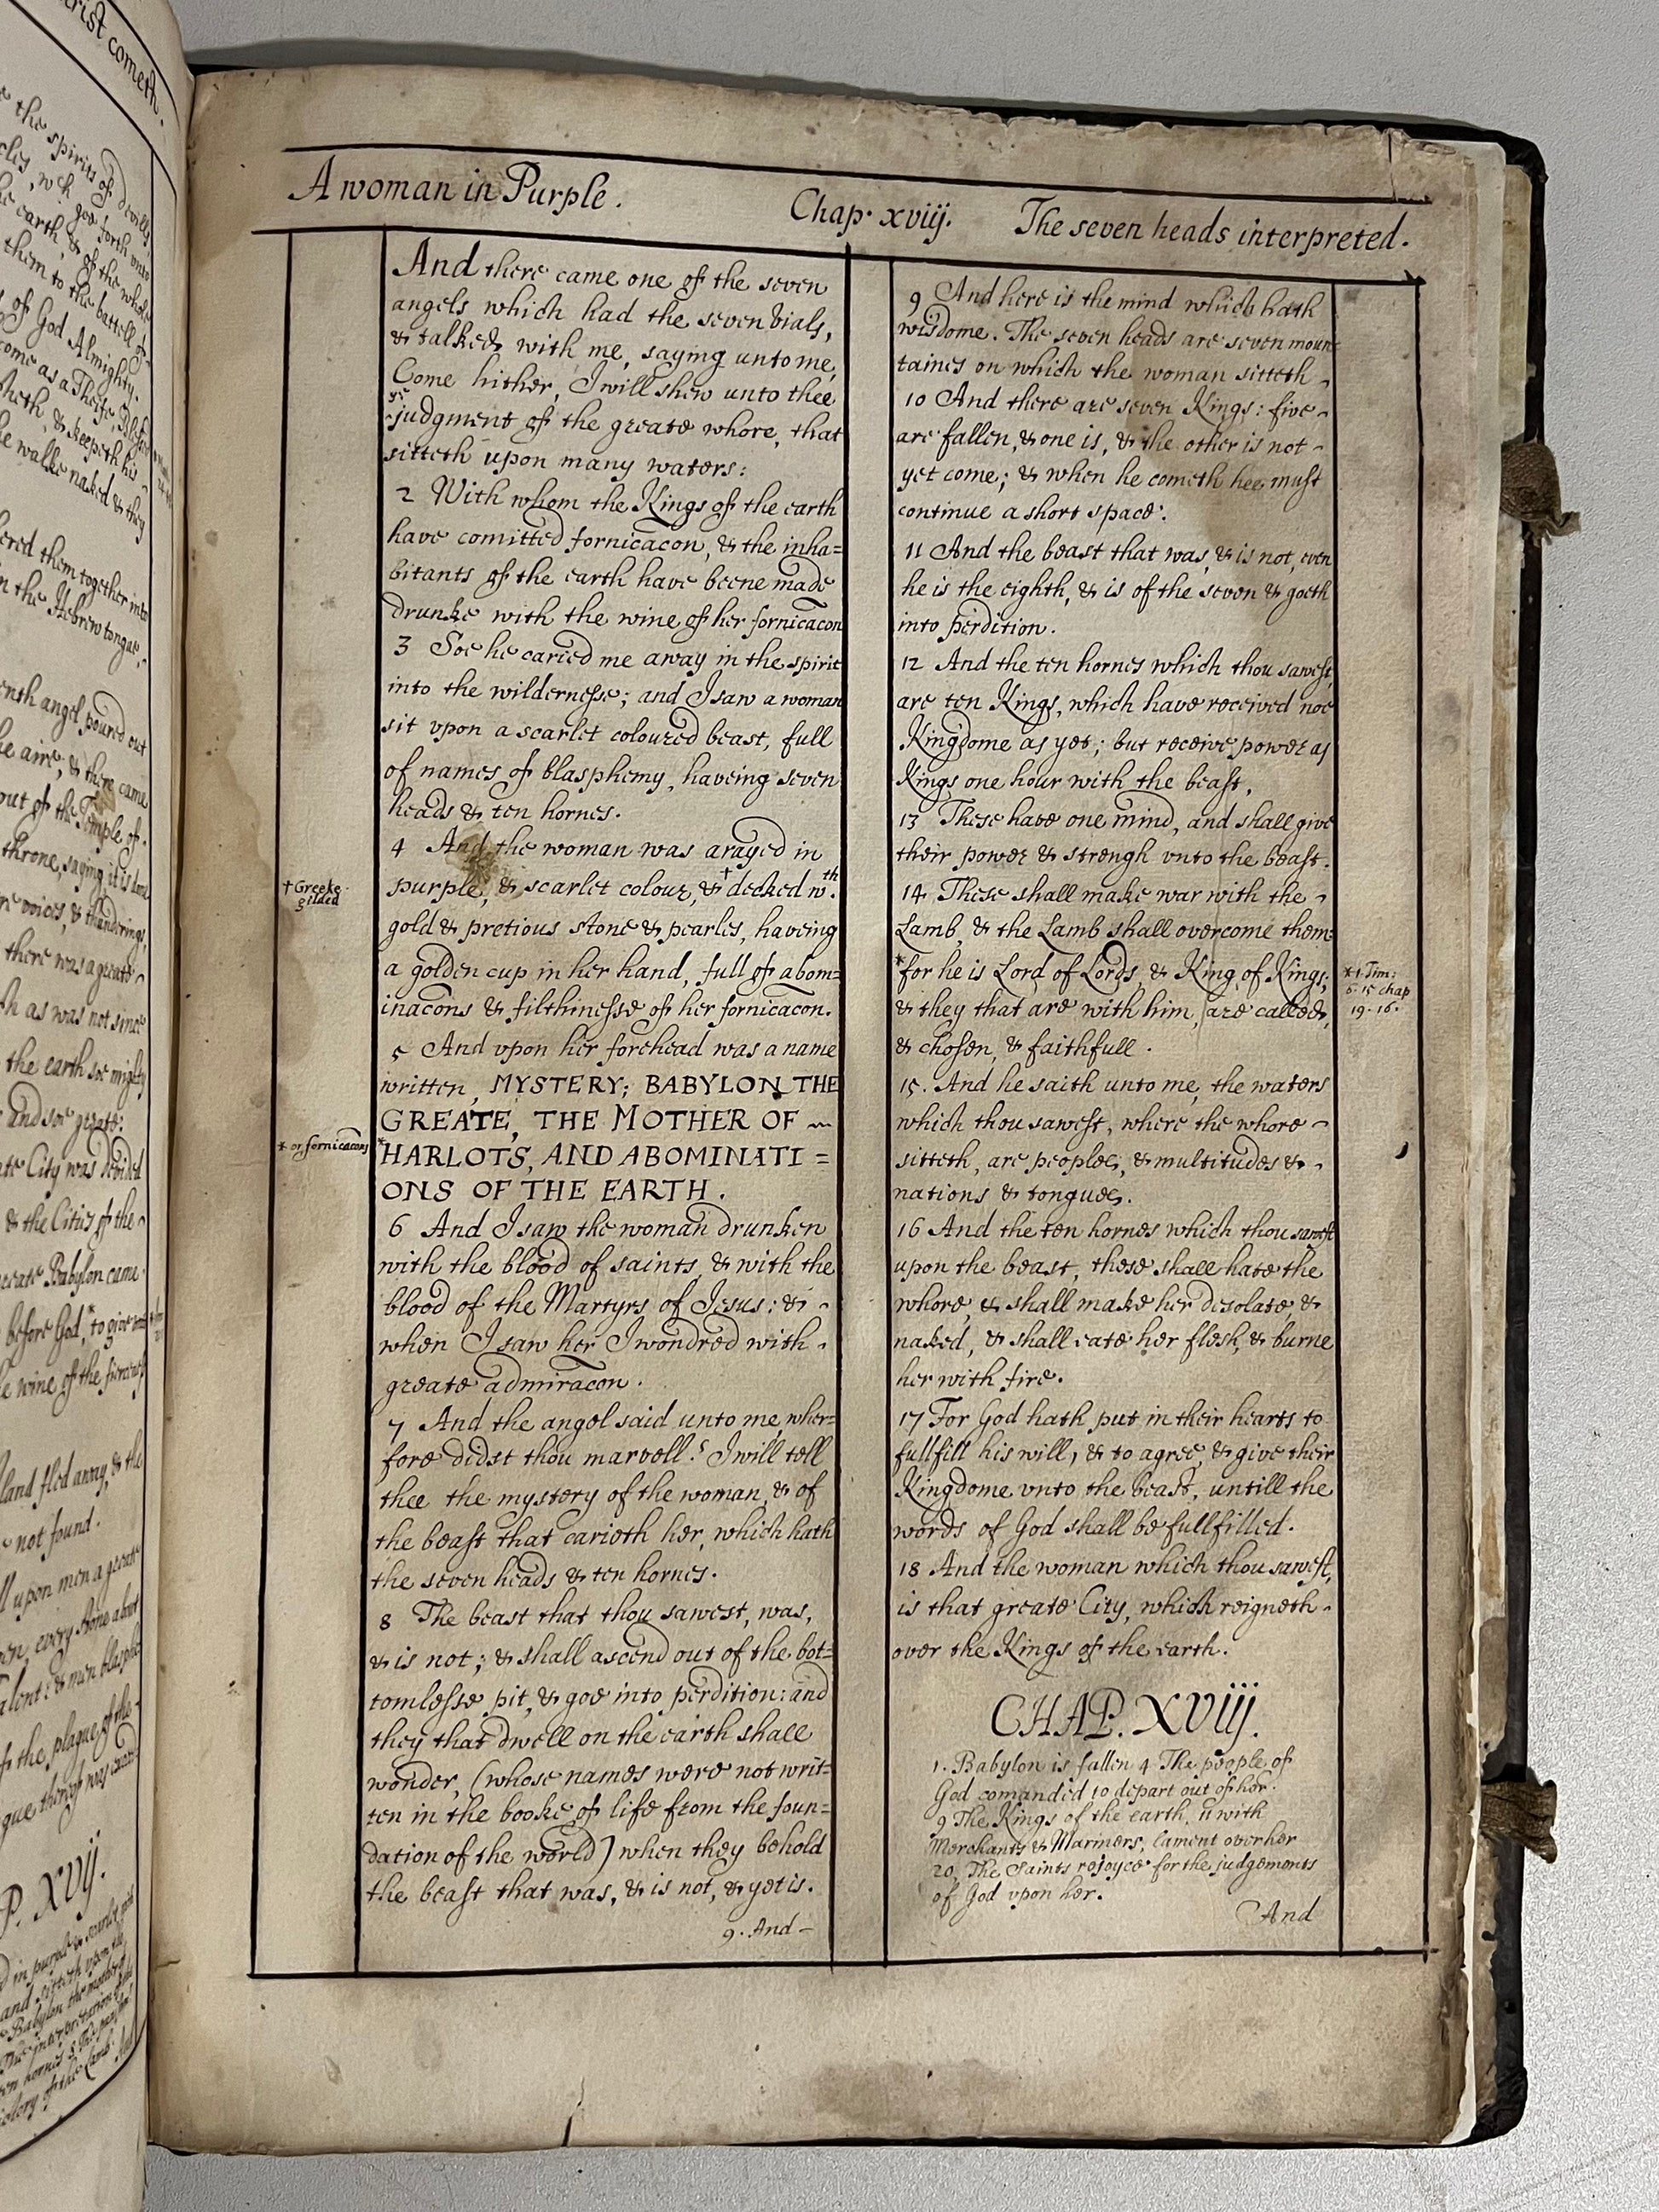 rist cometh.
the spirits of devills
wch goe forth unto
earth, & of the whole
them to the battell of
of God Almighty.
come as a Theife, Blessed
& keepeth his
walke naked & they
ered them together into
n the Hebrew tongue,
enth angel poured out
he aire; & there came
out of the Temple of
throne, saying, it is done
voices, & thunderings,
there was a greate
as was not since
the earth soe mighty
and soe greate:
City was devided
& the Cities of the
Babylon came
before God, *to give
wine of the
land fled away, & the
not found.
upon men a greate
every stone about
& men blasphe
the plague of the
P. XVIJ.
A woman in Purple.
Chap. xviij.
The seven heads interpreted.
And there came one of the seven
angels which had the seven vials,
& talked with me, saying unto me,
Come hither, I will shew unto thee
ye judgment of the greate whore, that
sitteth upon many waters:
2 With whom the Kings of the earth
have comitted fornicacon, & the inha=
bitants of the earth have beene made
drunke with the wine of her fornicacon
3 Soe he caried me away in the spirit
into the wildernesse; and I saw a woman
sit vpon a scarlet coloured beast, full
of names of blasphemy, haveing seven
heads & ten hornes.
4 And the woman was arayed in
purple, & scarlet colour, & †decked wth.
gold & pretious stone & pearles, haveing
a golden cup in her hand, full of abom=
inacons & filthinesse of her fornicacon.
5 And vpon her forehead was a name
written, MYSTERY; BABYLON THE
GREATE, THE MOTHER OF ~
*HARLOTS, AND ABOMINATI =
ONS OF THE EARTH.
6 And I saw the woman drunken
with the blood of saints, & with the
blood of the Martyrs of Jesus: & -
when I saw her I wondred with -
greate admiracon.
7 And the angel said unto me, wher=
fore didst thou marvell? I will tell
thee the mystery of the woman, & of
the beast that carieth her, which hath
the seven heads & ten hornes.
8 The beast that thou sawest, was,
& is not; & shall ascend out of the bot=
tomlesse pit, & goe into perdition: and
they that dwell on the earth shall
wonder, (whose names were not writ=
ten in the booke of life from the foun=
dation of the world) when they behold
the beast that was, & is not, & yet is.
9. And -
† Greeke.
gilded
* or, fornicacons
9 And here is the mind which hath
wisdome. The seven heads are seven moun=
taines on which the woman sitteth -
10 And there are seven Kings: five -
are fallen, & one is, & the other is not -
yet come; & when he cometh hee must
continue a short space.
11 And the beast that was, & is not, even
he is the eighth, & is of the seven & goeth
into perdition.
12 And the ten hornes which thou sawest,
are ten Kings, which have received noe
Kingdome as yet; but receive power as
Kings one hour with the beast.
13 These have one mind, and shall give
their power & strengh vnto the beast.
14 These shall make war with the -
Lamb, & the Lamb shall overcome them:
*for he is Lord of Lords, & King of Kings;
& they that are with him, are called,
& chosen, & faithfull.
15. And he saith unto me, the waters
which thou sawest, where the whore -
sitteth, are peoples, & multitudes & -
nations & tongues.
16 And the ten hornes which thou sawest
upon the beast, these shall hate the
whore, & shall make her desolate, &
naked, & shall eate her flesh, & burne
her with fire.
17 For God hath put in their hearts to
fullfill his will, & to agree, & give their
Kingdome vnto the beast, untill the
words of God shall be fullfilled.
18 And the woman which thou sawest,
is that greate City, which reigneth -
over the Kings of the earth.
CHAP. XVIIJ.
1. Babylon is fallen 4 The people of
God comanded to depart out of her.
9 The Kings of the earth, 11 with
Merchants & Mariners, lament over her
20, The Saints rejoyce for the judgements
of God vpon her.
And
* 1. Tim:
6. 15 chap
19. 16.